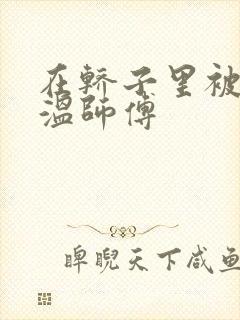 在轿子里被
温师傅
睥睨天下咸鱼